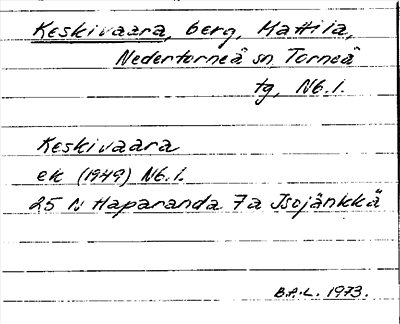 Keskivaara, berg, Mattila,
Nedertorneå sn, Torneå
tg, N6.1.
Keskivaara
ek (1949) N6.1.
25 N Haparanda 7a Isojänkkä
B.A-L. 1973.